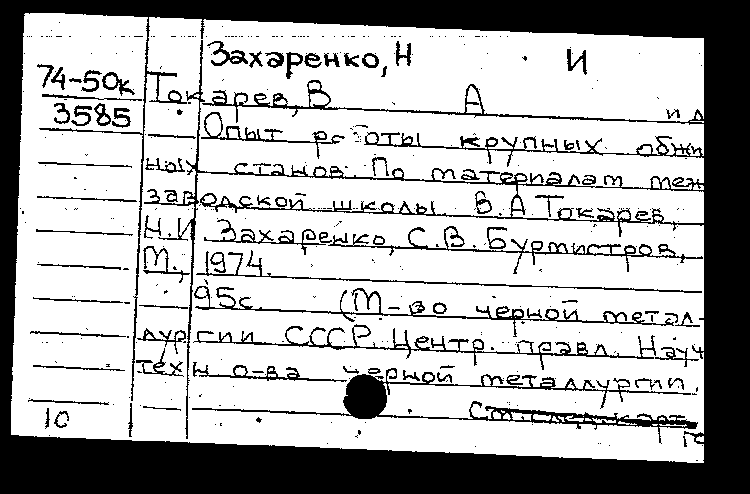 Захаренко, Н И
74-50к Токарев, В А и д
3585 Опыт работы крупных обжи
ных станов. По материалам меж
заводской школы В.А Токарев,
Н.И Захаренко, С.В. Бурмистров,
М., 1974.
95с. (М-во черной метал-
лургии СССР. Центр. правл. Науч
техн о-ва черной металлургии.
См. след. карт.
10